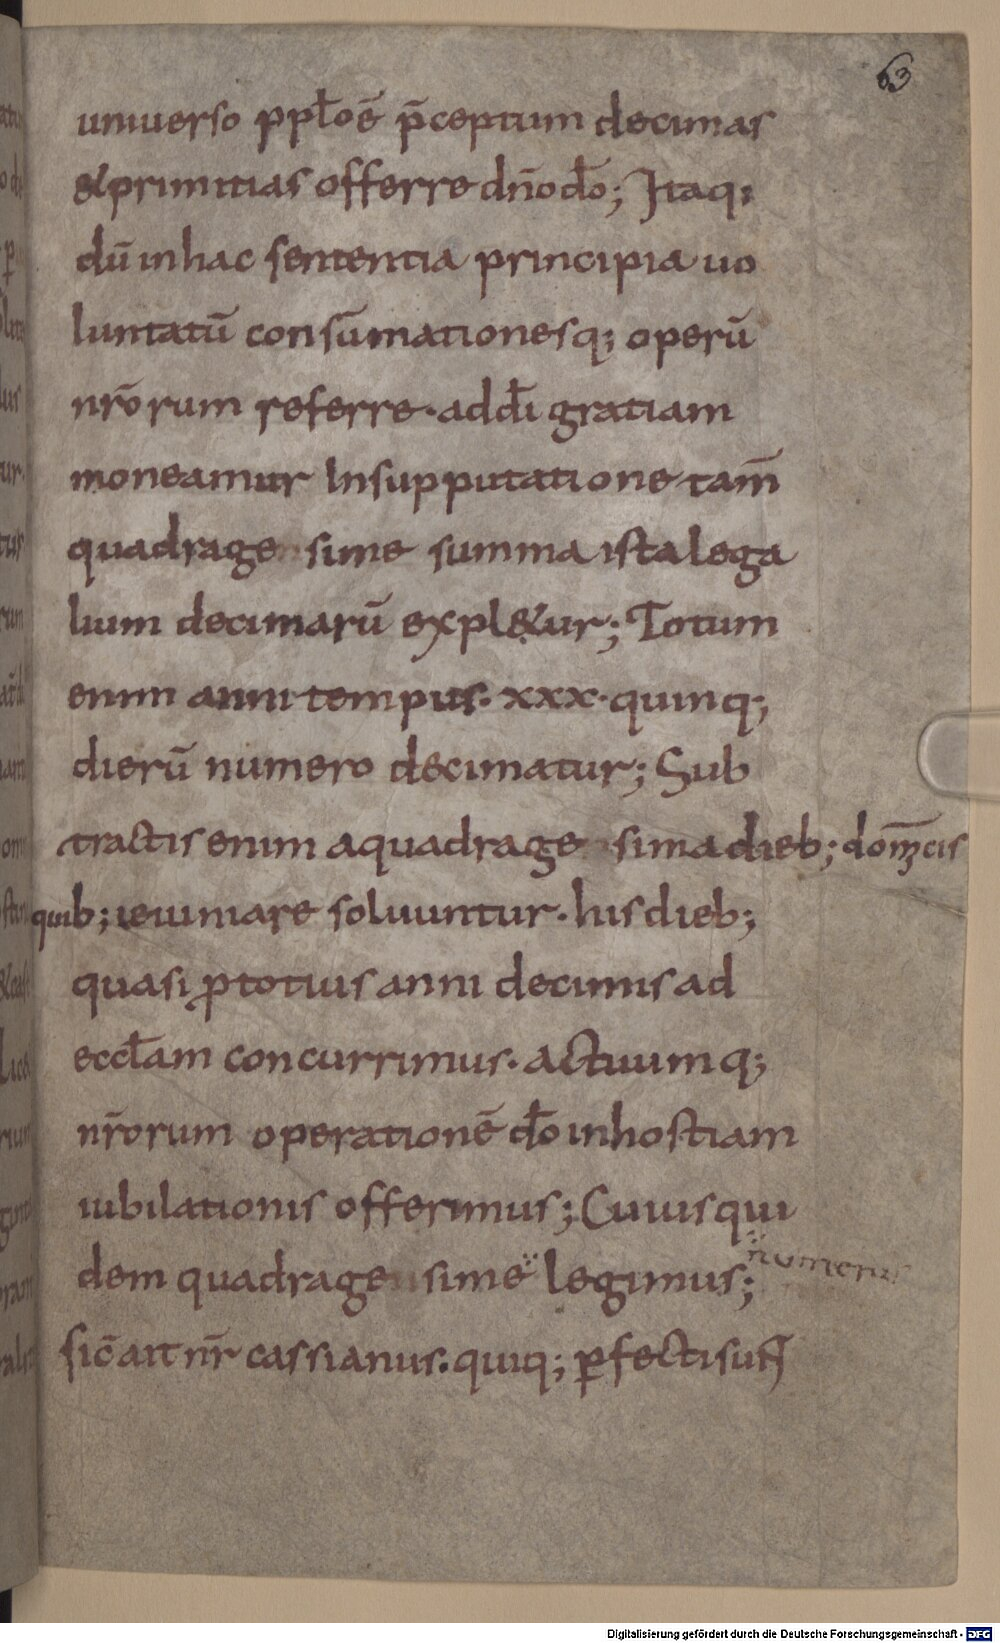 63
uniuerso ppło ē p̄ceptum decimas
&primitias offerre dn̄o do̅; Itaq;
dū in hac sententia principia uo
luntatū consūmationesq; operū
nr̄orum referre· ad dī gratiam
moneamur Insupputatione tam̄
quadragesime summa ista lega
lium decimarū expl&ur; Totum
enim anni tempus· xxx· quinq;
dierū numero decimatur; Sub
tractis enim aquadragesima dieb; dom̄cis
quib; ieiunare soluuntur· his dieb;
quasi ꝓ totius anni decimis ad
eccłam concurrimus· actuumq;
nr̄orum operationē do̅ in hostiam
iubilationis offerimus; Cuius qui
dem quadragesime legimus; numerus
sic̄ ait nr̄ cassianus· quiq; ꝑfecti sunt
Digitalisierung gefördert durch die Deutsche Forschungsgemeinschaft - DFG